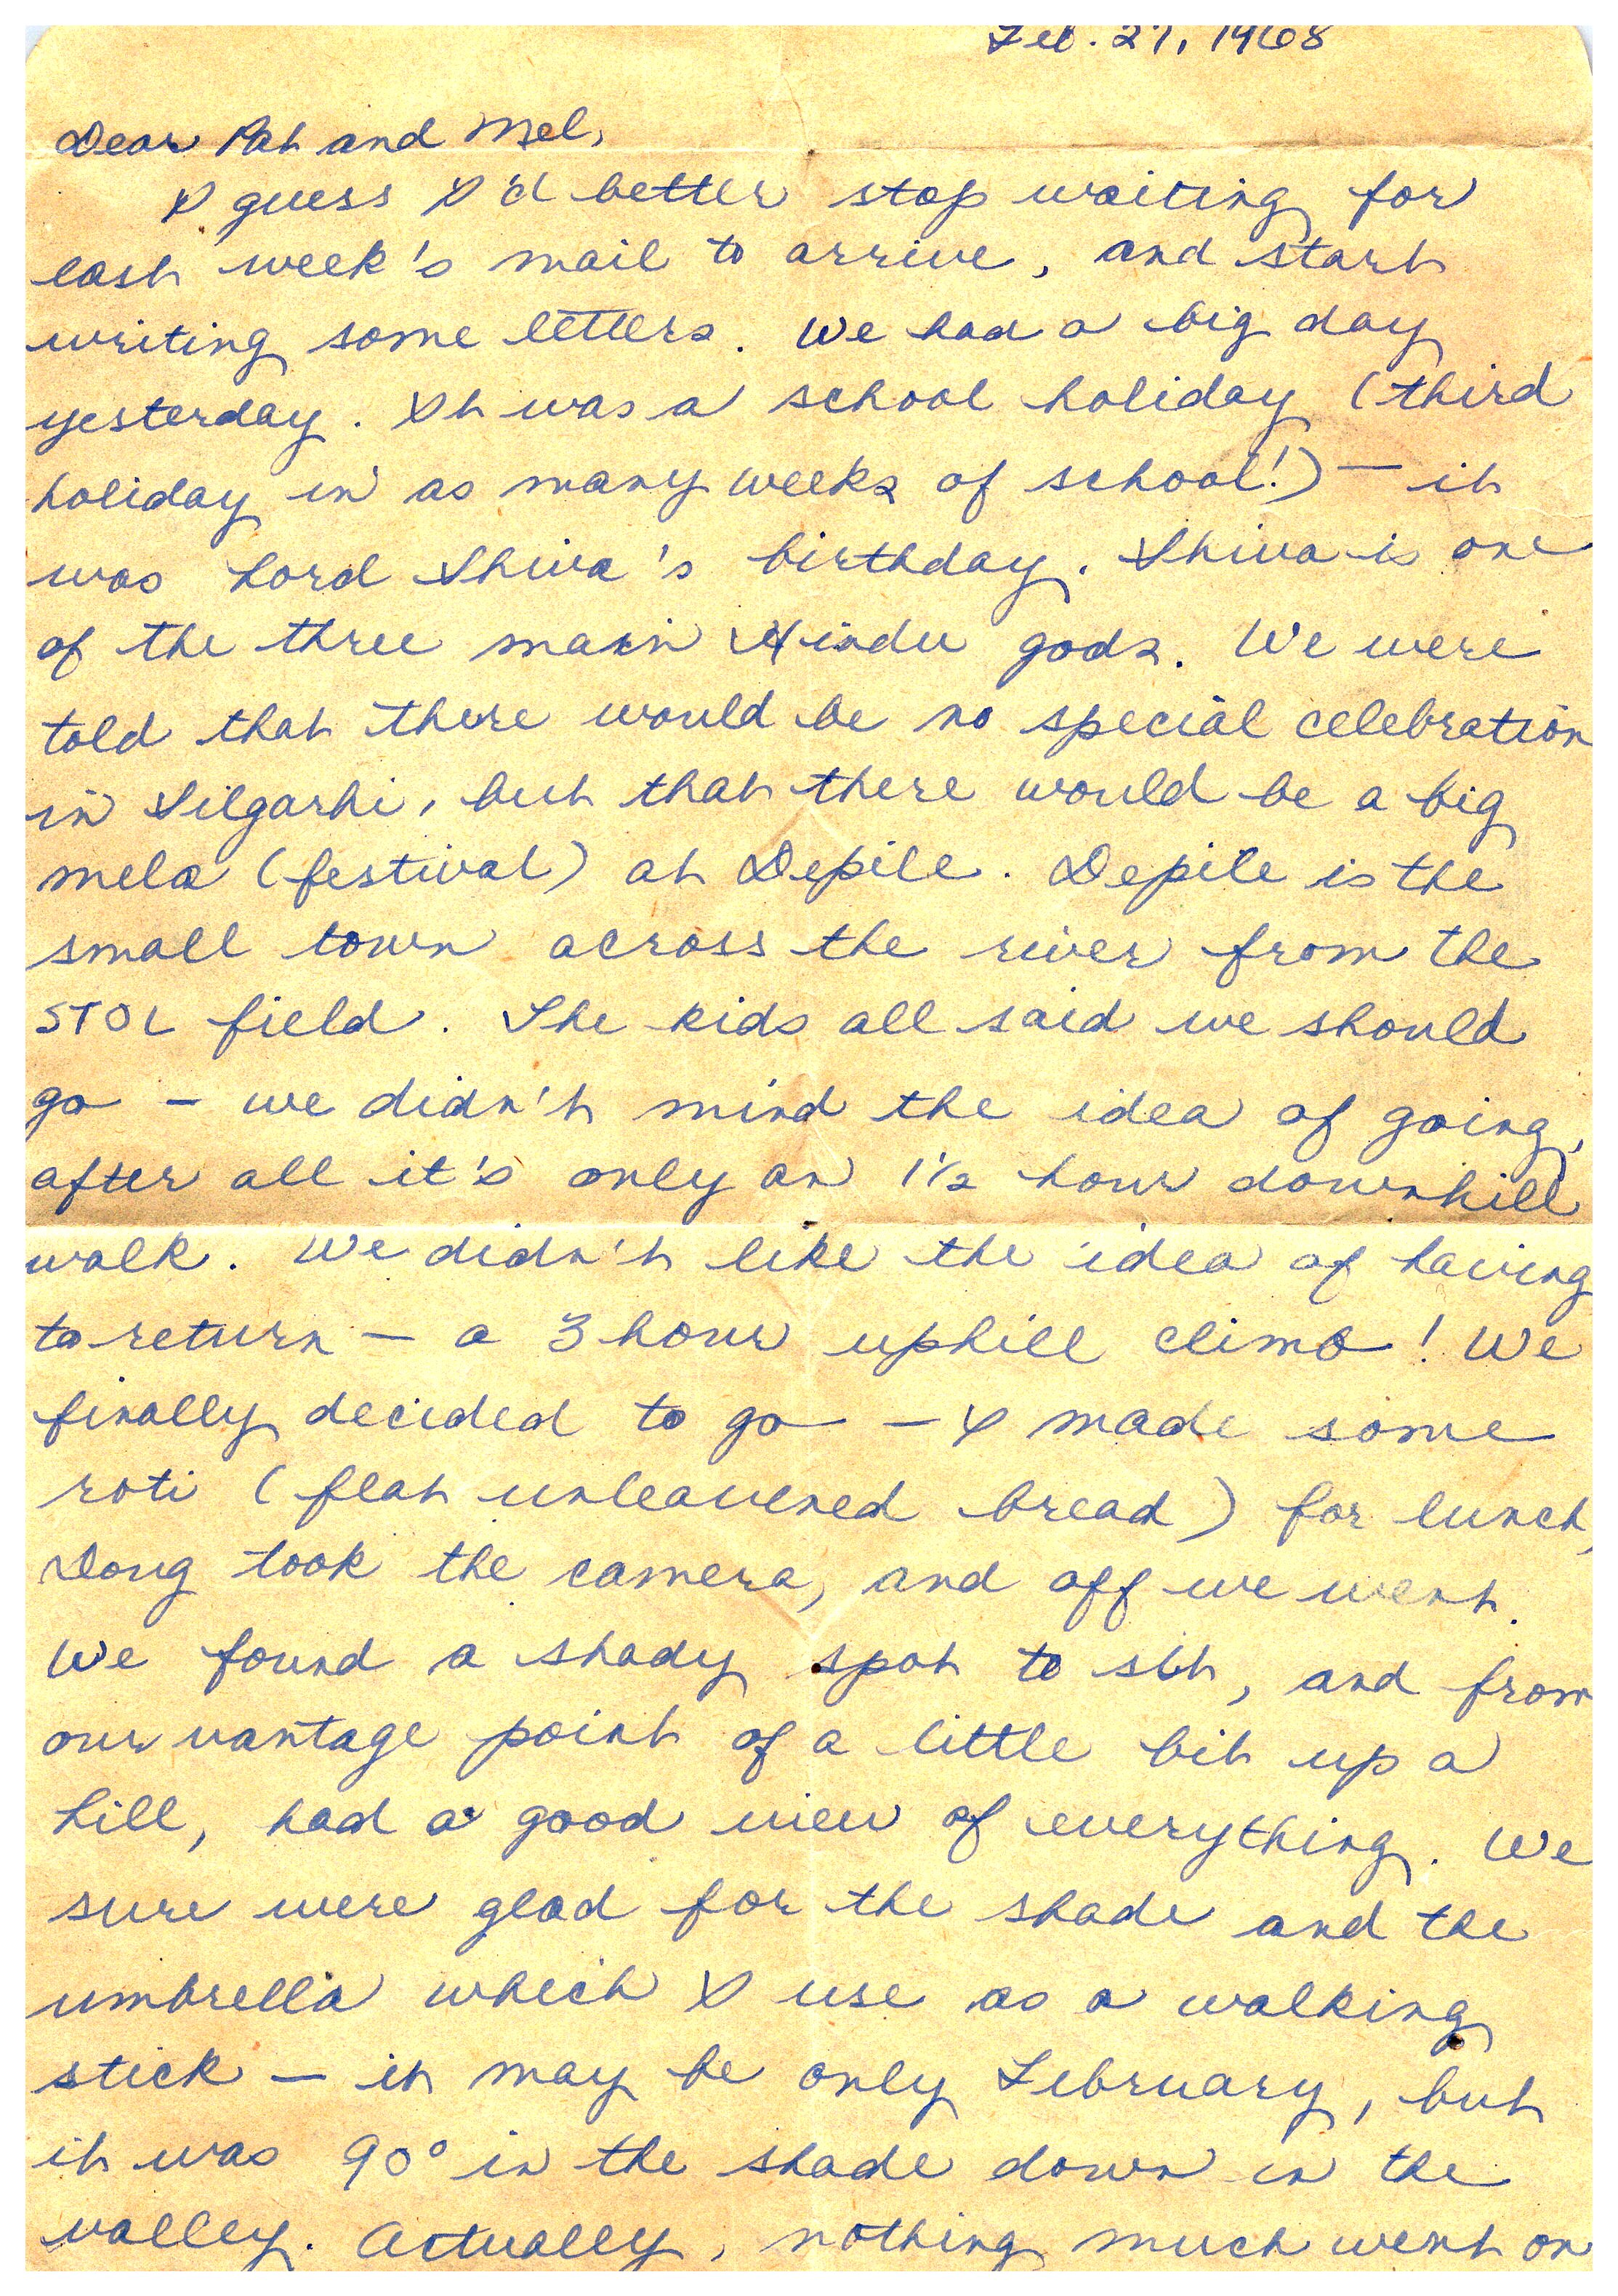 Feb. 27, 1968
Dear Pat and Mel,
I guess I'd better stop waiting for
last week's mail to arrive, and start
writing some letters. We had a big day
yesterday. It was a school holiday (third
holiday in as many weeks of school!) — it
was Lord Shiva's birthday. Shiva is one
of the three main Hindu gods. We were
told that there would be no special celebration
in Silgarhi, but that there would be a big
mela (festival) at Depile. Depile is the
small town across the river from the
STOL field. The kids all said we should
go - we didn't mind the idea of going,
after all it's only an 1½ hour downhill
walk. We didn't like the idea of having
to return — a 3 hour uphill climb! We
finally decided to go — I made some
roti (flat unleavened bread) for lunch,
Doug took the camera, and off we went.
We found a shady spot to sit, and from
our vantage point of a little bit up a
hill, had a good view of everything. We
sure were glad for the shade and the
umbrella which I use as a walking
stick — it may be only February, but
it was 90° in the shade down in the
valley. Actually, nothing much went on